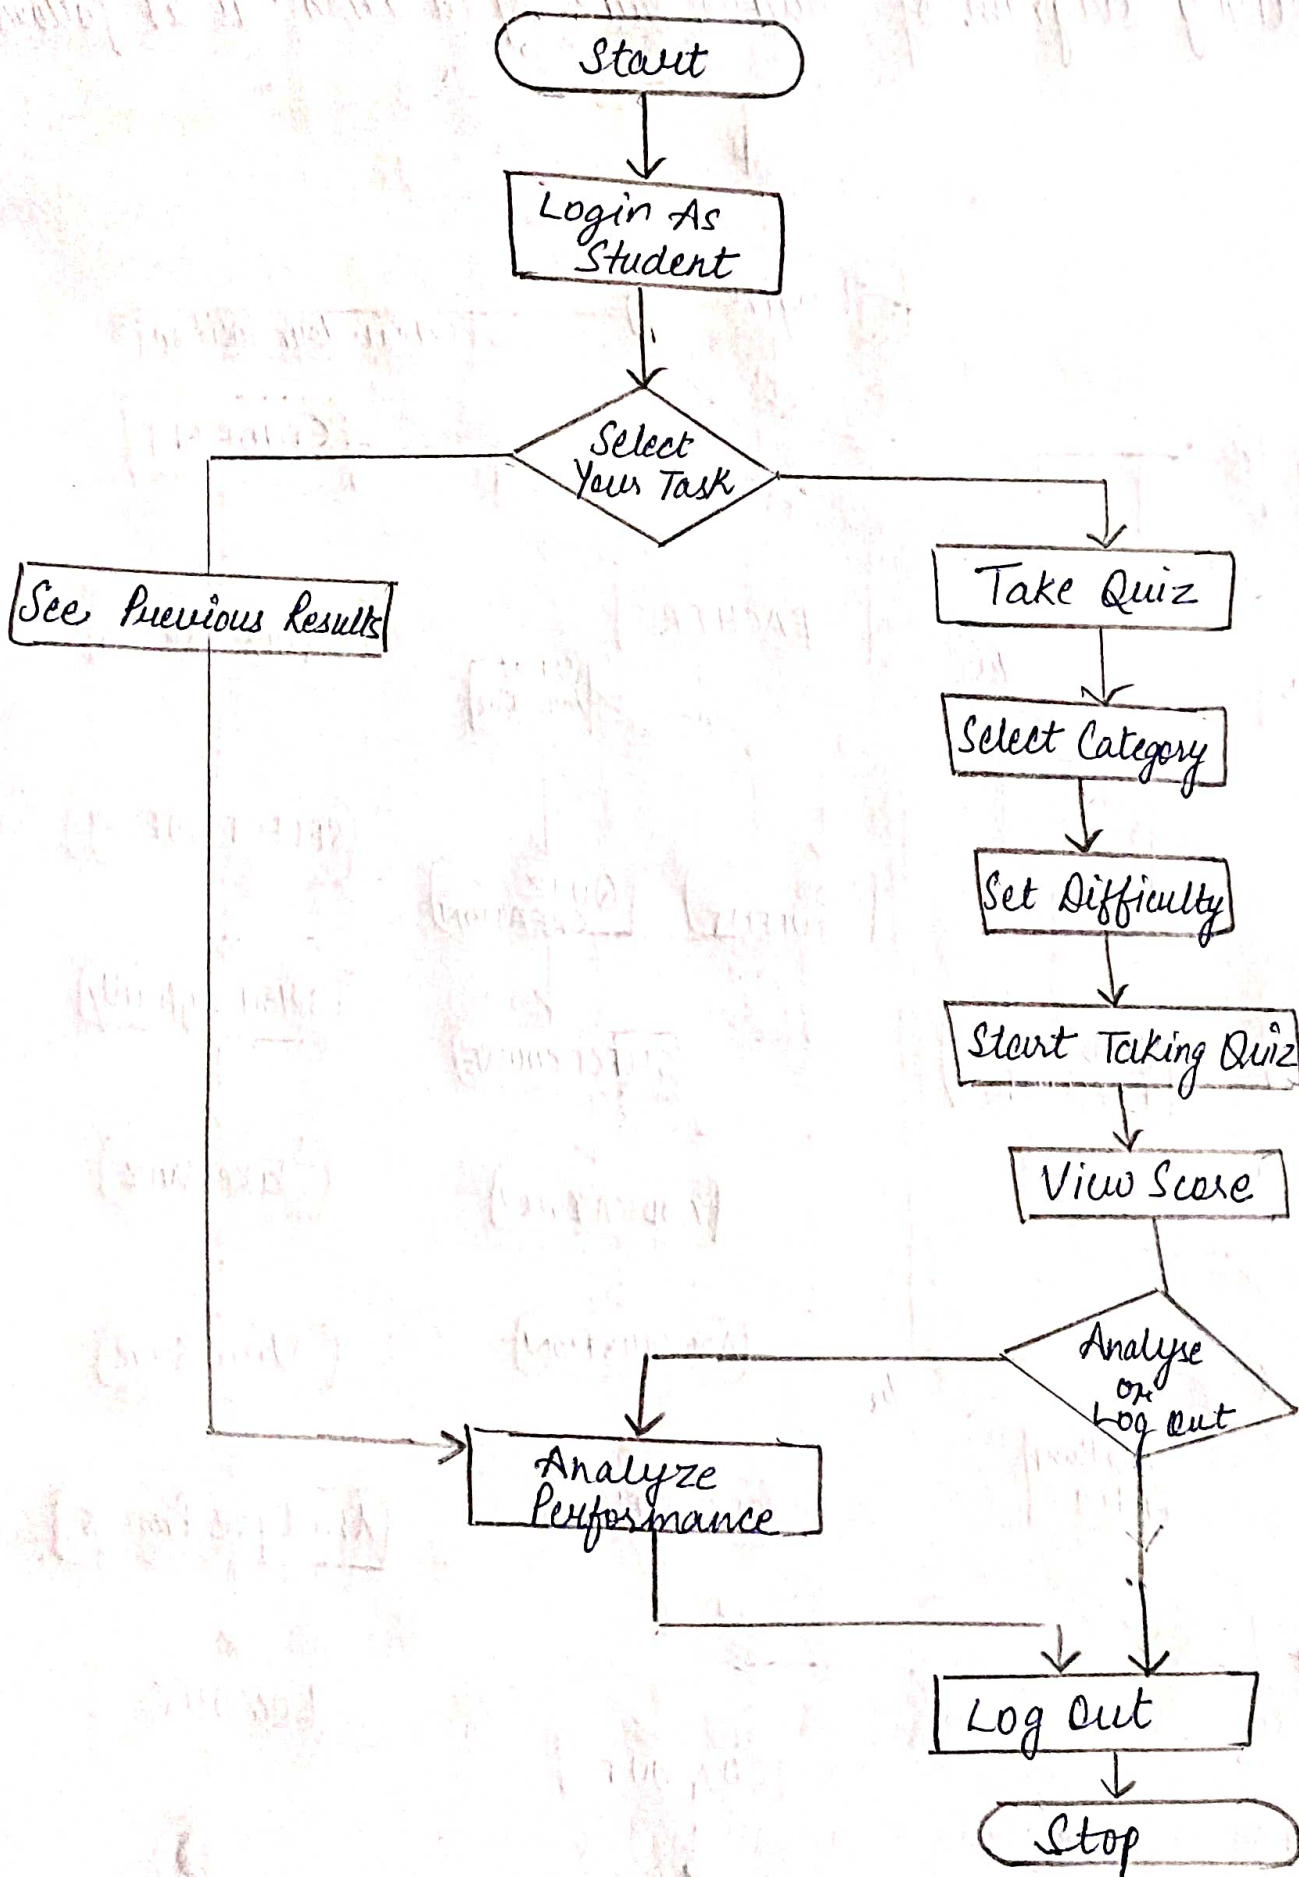 Start
Login As
Student
Select
Your Task
See Previous Results
Take Quiz
Select Category
Set Difficulty
Start Taking Quiz
View Score
Analyse
or
Log Out
Analyze
Performance
Log Out
Stop